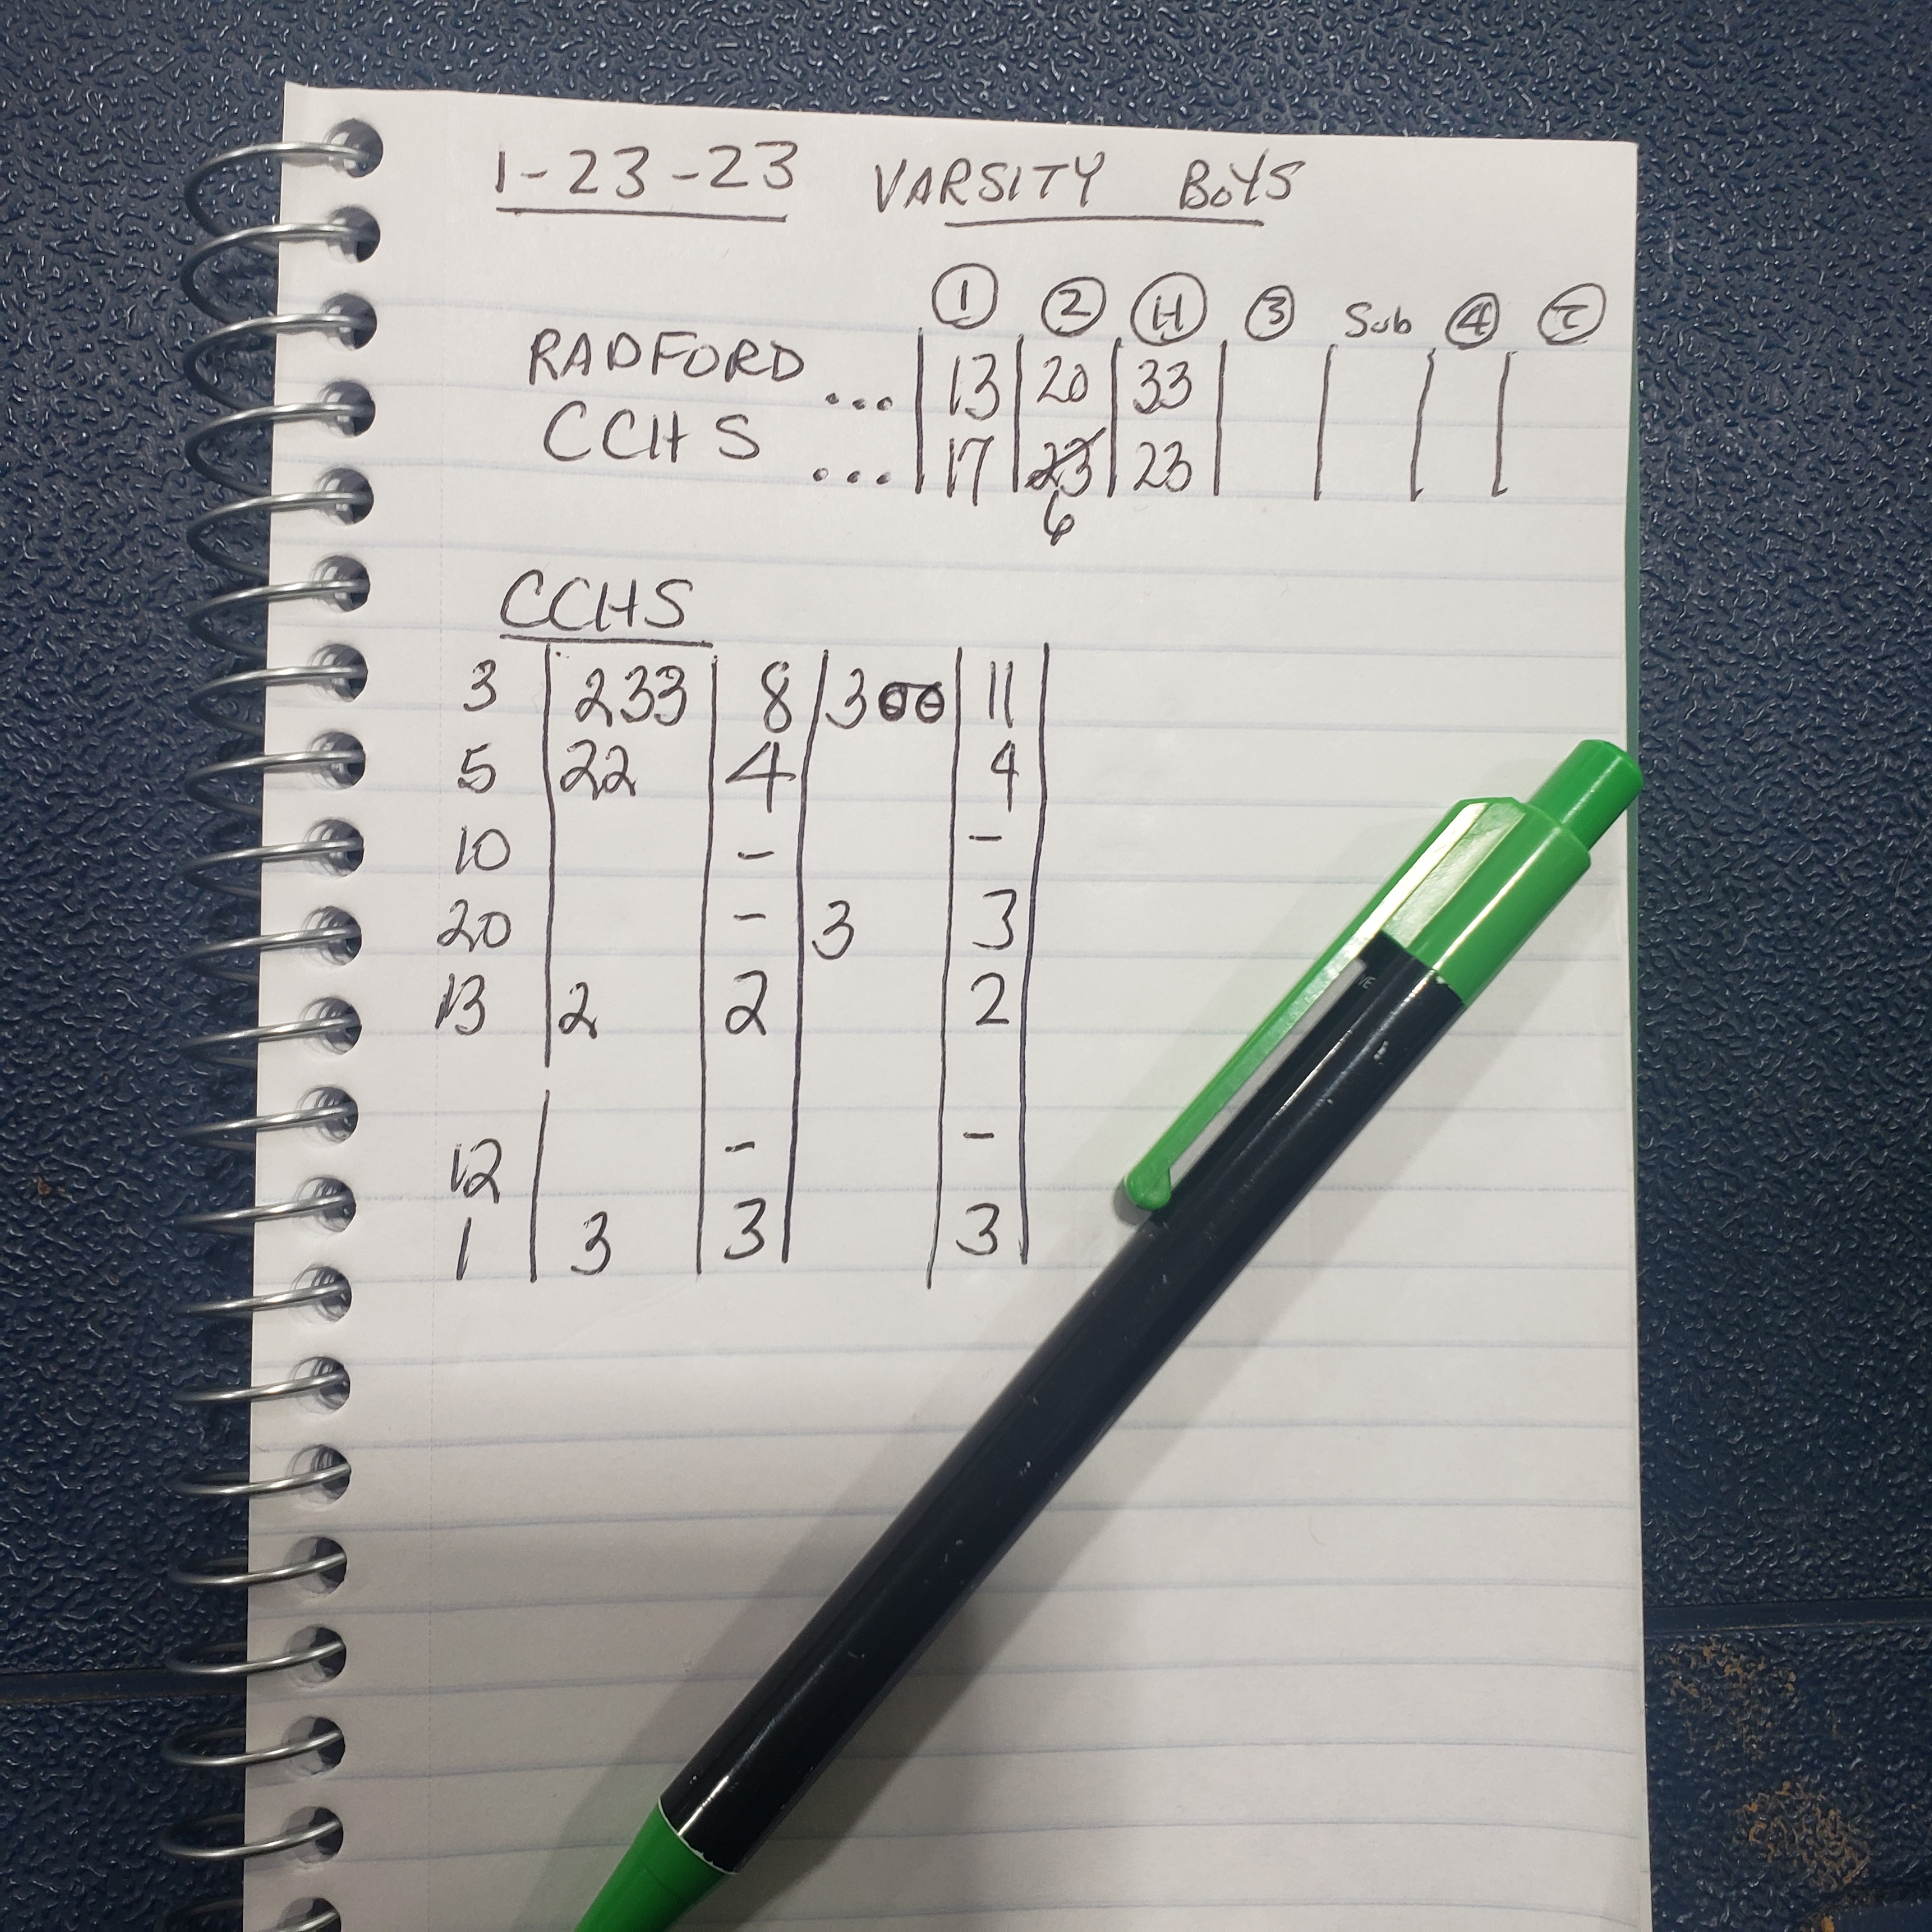 1-23-23 VARSITY BOYS
1 2 H 3 Sub 4 T
RADFORD ... 13 20 33
CCHS ... 17 23 23
6
CCHS
3 233 8 300 11
5 22 4 4
10 - -
20 - 3 3
13 2 2 2
12 - -
1 3 3 3